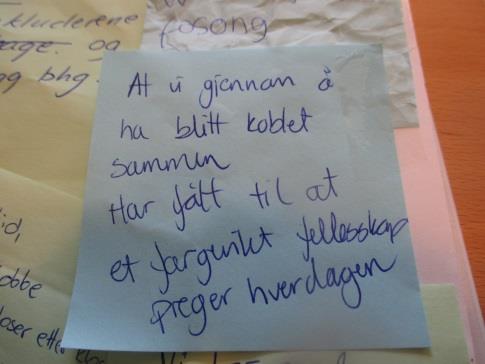 kluderene
og
og bhg.
fosong
At vi giennom å
ha blitt koblet
sammen
Har fått til at
et fargerikt fellesskap
preger hverdagen
id,
obbe
loser etter